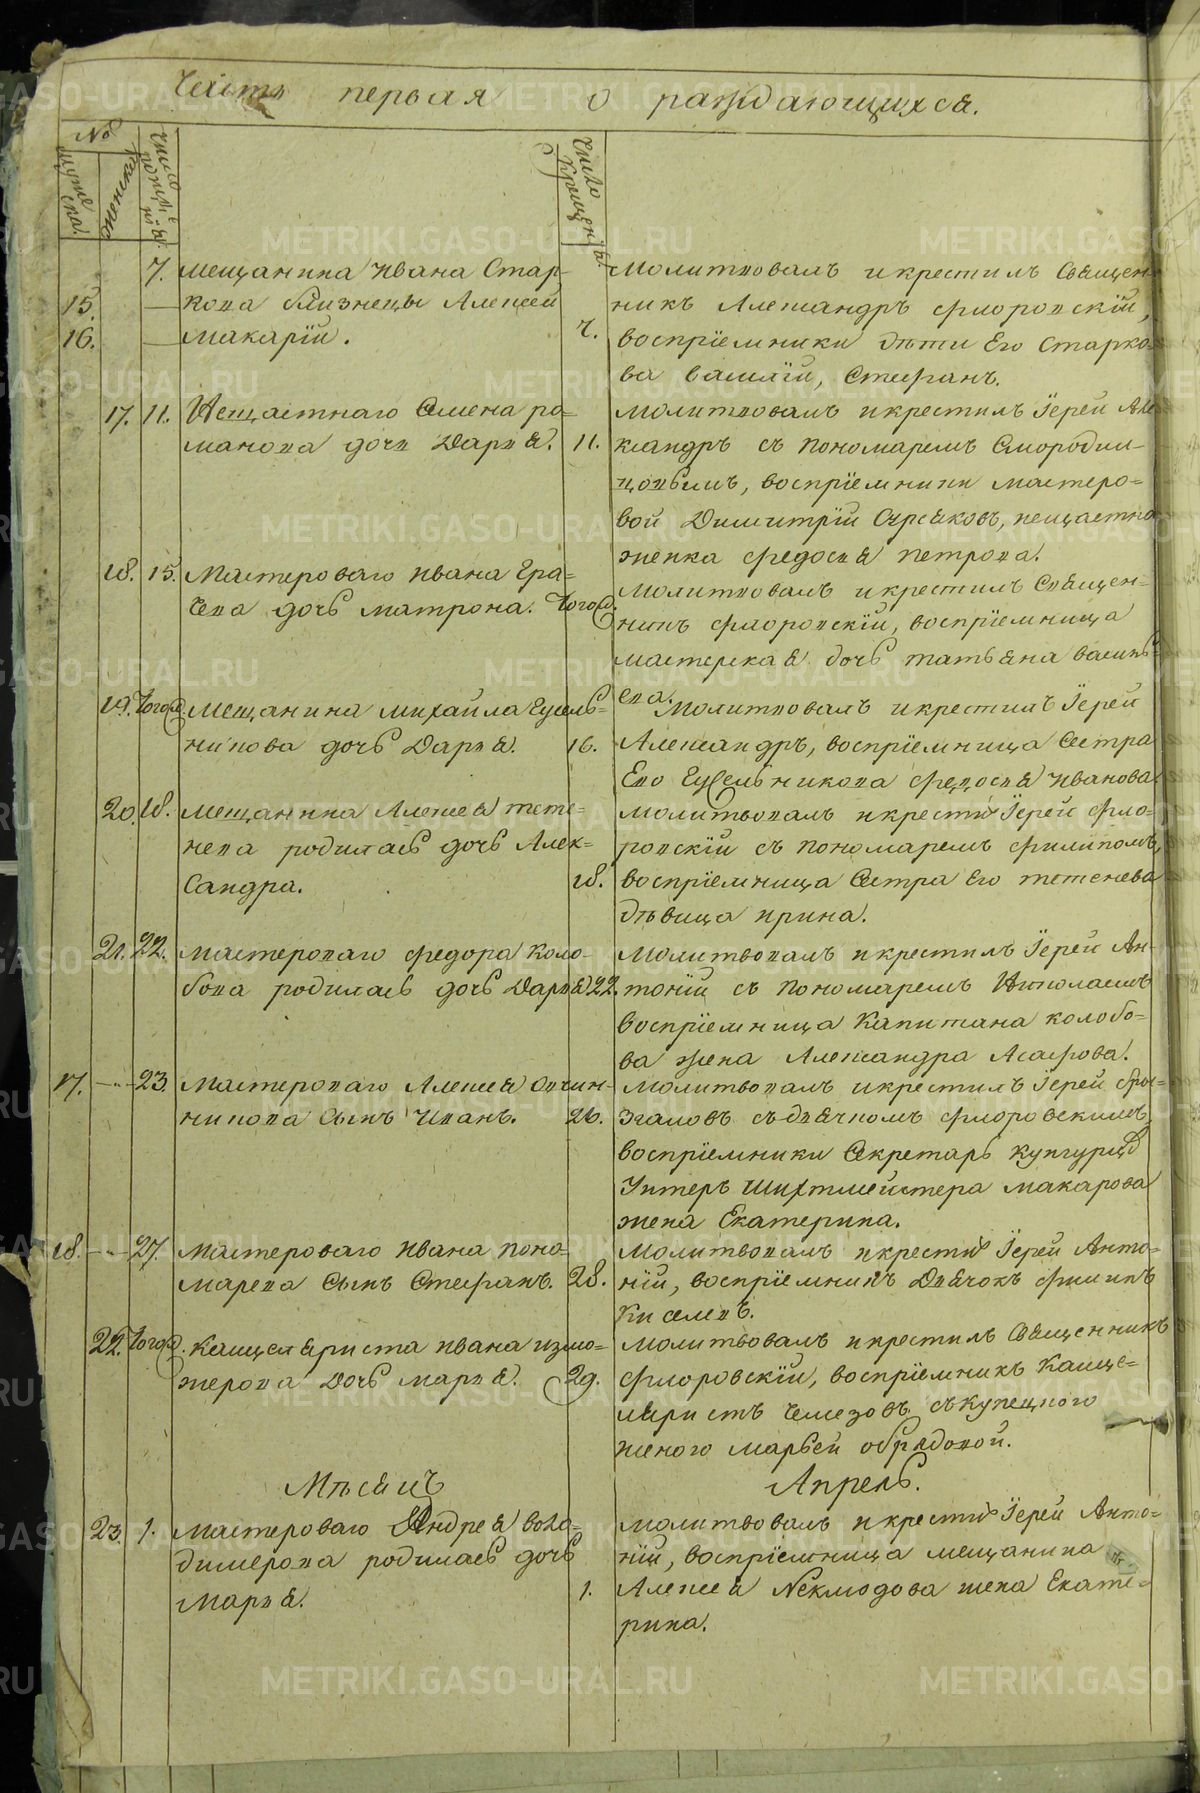 Часть первая о раждающихся.
№
мужеска.
женска
число рождения.
число крещения.
7. Мещанина Ивана Стар-
15. кова близнецы Алексей
16. Макарій. 7.
Молитвовалъ и крестилъ Священ-
никъ Александръ Флоровскій,
воспріемники дѣти Его Старко-
ва Василій, Стефанъ.
17. 11. Нещастнаго Семена Ро-
манова дочь Дарья. 11.
Молитвовалъ и крестилъ Іерей Але-
ксандръ съ пономаремъ Смородин-
цовымъ, воспріемники мастеро-
вой Димитрій Сиряковъ, нещастна
женка Федосья Петрова.
18. 15. Мастероваго Ивана Гра-
чева дочь Матрона. Тогожд.
Молитвовалъ и крестилъ Священ-
никъ Флоровскій, воспріемница
мастерская дочь Татьяна Василь-
ева.
19. Тогожд. Мещанина Михайла Гусель-
никова дочь Дарья. 16.
Молитвовалъ и крестилъ Іерей
Александръ, воспріемница Сестра
Его Гусельникова Федосья Иванова.
20. 18. Мещанина Алексея Тете-
нева родилась дочь Алек-
сандра. 18.
Молитвовалъ и крестилъ Іерей Фло-
ровскій съ пономаремъ Филипомъ,
воспріемница Сестра Его Тетенева
дѣвица Ирина.
21. 22. Мастероваго Федора Коло-
бова родилась дочь Дарья 22.
Молитвовалъ и крестилъ Іерей Ан-
тоній съ пономаремъ Николаемъ
воспріемница Капитана Колобо-
ва жена Александра Асафова.
17. 23 Мастероваго Алексея Овчин-
никова Сынъ Иванъ. 26.
Молитвовалъ и крестилъ Іерей Бры-
згаловъ съ дьячкомъ Флоровскимъ,
воспріемники Секретарь
Унтеръ Шихтмейстера Макарова
жена Екатерина.
18. 27. Мастероваго Ивана Поно-
марева Сынъ Стефанъ. 28.
Молитвовалъ и крестилъ Іерей Анто-
ній, воспріемникъ Дьячокъ Филипъ
Киселевъ.
22. Тогожд. Канцеляриста Ивана Измо-
жерова Дочь Марья. 29.
Молитвовалъ и крестилъ Священникъ
Флоровскій, воспріемникъ Канце-
ляристъ Чемезовъ съ купецкого
женого Марьей Обрядовой.
Мѣсяцъ Апрель.
23. 1. Мастероваго Андрея Воло-
димерова родилась дочь
Марья. 1.
Молитвовалъ и крестилъ Іерей Анто-
ній, воспріемница мещанина
Алексея Неклюдова жена Екате-
рина.
METRIKI.GASO-URAL.RU